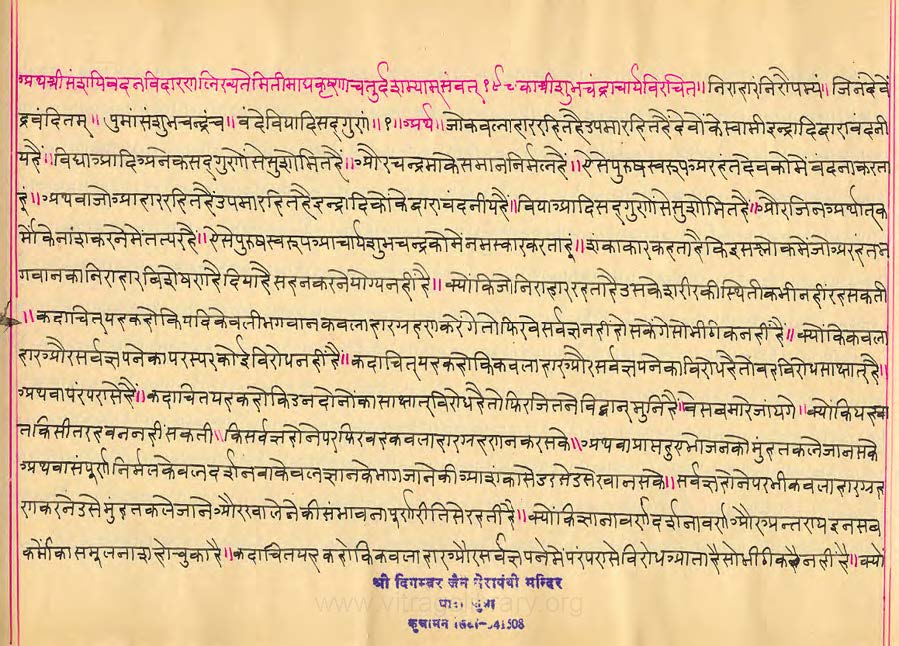 अथश्रीसंशयिवदनविदारणलिख्यतेमितीमाघकृष्णाचतुर्दशम्यामसंवत् १९८ काश्रीशुभचंद्राचार्यविरचित॥ निराहारंनिरौपम्यं॥ जिनदेवें
द्रवंदितम्॥ पुमासंशुभचन्द्रंच॥ वंदेवियादिसद्गुरां॥१॥अर्थ॥ जोकवलाहाररहितहैउपमारहितहैंदेवोंकेस्वामीइन्द्रादिद्वारावंदनी
यहैं॥ विद्याआदिअनेकसद्गुणोंसेसुशोभितहैं॥ औरचन्द्रमाकेसमाननिर्मलहैं॥ ऐसेपुरुषस्वरूपअरहंतदेवकोमेंवंदनाकरता
हूं॥ अथवाजोआहाररहितहैंउपमारहितहैइन्द्रादिकोंकेद्वारावंदनीयहैं॥ विद्याआदिसद्गुणोंसेसुशोभितहैं॥ औरजिनअर्थातक
र्मोकेनांशकरनेमेंतत्परहैं॥ ऐसेपुरुषस्वरूपआचार्यशुभचन्द्रकोमेंनमस्कारकरताहूं॥ शंकाकारकहताहैकिइसश्लोकमेंजोअरहंतभ
गवानकानिराहारविशेषणहैदियाहैसहनकरनेयोग्यनहींहै॥ क्योंकिजोनिराहाररहताहैउसकेशरीरकीस्थितीकभीनहींरहसकती
॥ कदाचित्यहकहोकियदिकेवलीभगवानकवलाहारग्रहणकरेंगेतोफिरवेसर्वज्ञनहींहोसकेंगेसोभीठीकनहींहै॥ क्योंकिकवला
हारऔरसर्वज्ञपनेकापरस्परकोईविरोधनहींहैं॥ कदाचित्यहकहोकिकवलाहारऔरसर्वज्ञपनेकाविरोधहैतोवहविरोधसाक्षातहै॥
अथवापंरपरासेहैं॥ कदाचितयहकहोकिउनदोनोंकासाक्षात्विरोधहैतोफिरजितनेविद्वान्मुनिहैं॥ वेसबमारेजांयगे॥ क्योंकियहबा
तकिसीतरहबननहींसकती॥ किसर्वज्ञहोनेपरफिरवहकवलाहारग्रहणनकरसके॥ अथवाप्राप्तहुएभोजनकोमुंहतकलेजानसके
अथवासंपूर्णनिर्मलकेवलदर्शनवाकेवलज्ञानकेभागजानेकीआशंकासेडरसेउसेखानसके॥ सर्वज्ञहोनेपरभीकवलाहारग्रह
णकरनेउसेमुंहतकलेजानेऔरखालेनेकीसंभावनापूर्णरीतिसेरहतीहै॥ क्योंकिज्ञानावर्णदर्शनावर्णऔरअन्तरायइनसब
कर्मोकासमूलनाशहोचुकाहै॥ कदाचितयहकहोकिकवलाहारऔरसर्वज्ञपनेमेंपरंपरासेविरोधआताहैसोभीठीकहैनहींहै॥ क्यों
श्री दिगम्बर जैन तेरापंथी मन्दिर
www.vitragelibrary.org
कुचामन